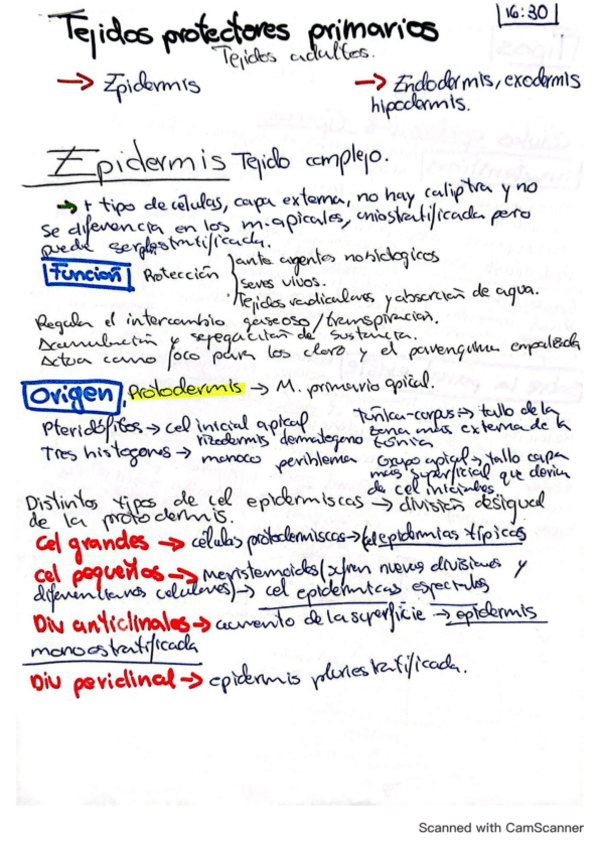 Tejidos protectores primarios
|16:30|
Tejidos adultos.
→ Epidermis
→ Endodermis, exodermis
hipodermis.
Epidermis Tejido complejo.
→ + tipo de células, capa externa, no hay caliptra y no
se diferencia en los m. apicales, uniostratificada pero
puede ser pluestratificada.
Función Protección
ante agentos no biologicos
seres vivos.
Tejidos radiculares y absorción de agua.
Regula el intercambio gaseoso/transpiración.
Acumulación y segegación de sustancia.
Actua como foco para los cloro y el parenquima empalizada
Origen, Protodermis → M. primario apical.
Pteridófitos → cel inicial apical
Tres histogenos → monoco rizodermis dermatogeno periblema
Túnica-corpus → tallo de la
zona más externa de la
túnica
Grupo apical → tallo capa
más superficial que deriva
de cel iniciales.
Distintos tipos de cel epidermiscas → división desigual
de la protodermis.
Cel grandes → células protodermiscas → cel epidermias típicas
Cel pequeños → meristemoides (sufren nuevas divisiones y
diferentianos celulares) → cel epidermicas especiales
Div anticlinales → aumento de la superficie → epidermis
monoestratificada
Div peridinal → epidermis pluriestratificada.
Scanned with CamScanner